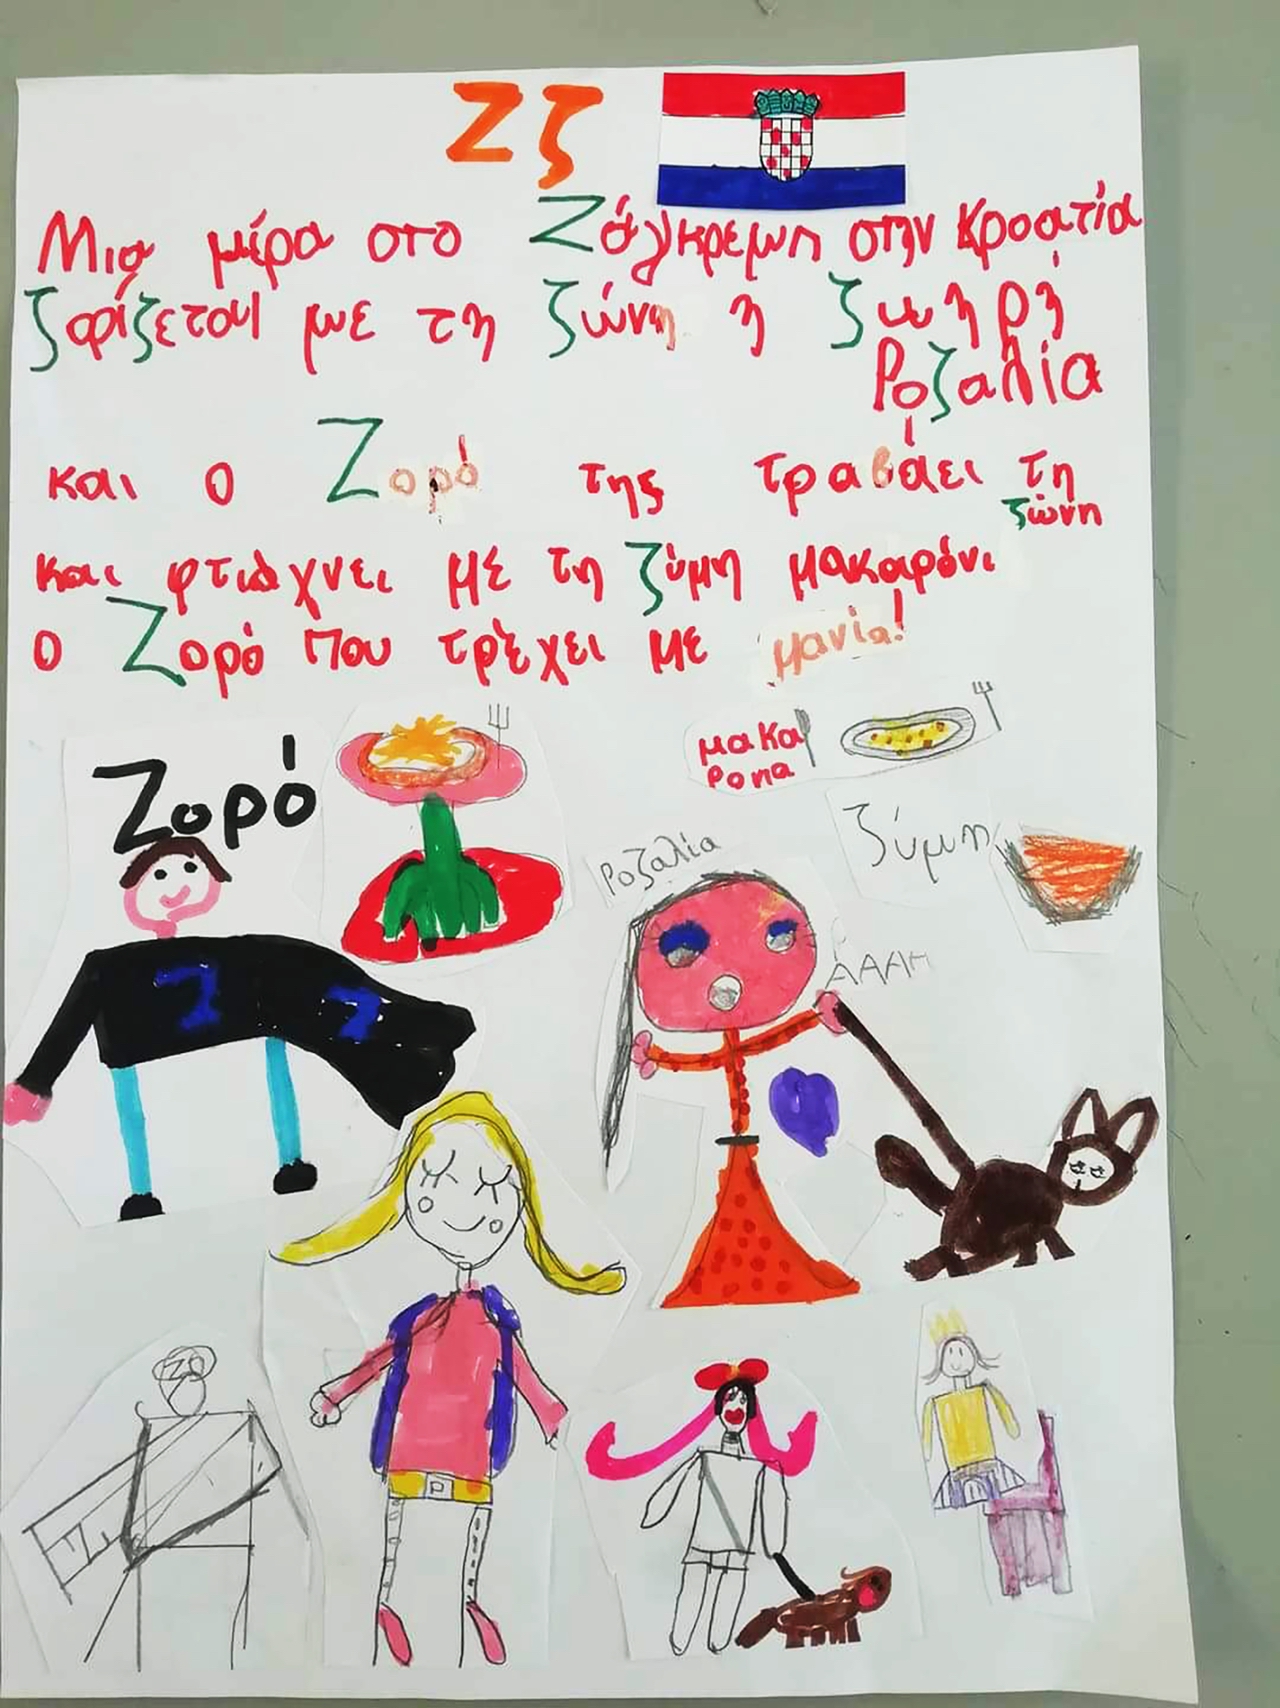 Ζζ
Μια μέρα στο Ζάγκρεμπ στην Κροατία
ζορίζεται με τη ζώνη η ζωηρή
Ροζαλία
και ο Ζορό της τραβάει τη
ζώνη
και φτιάχνει με τη ζύμη μακαρόνι
ο Ζορό που τρέχει με μανία!
Ζορό
μακα
ρονα
ζύμη
Ροζαλία
ΑΑΑΗ